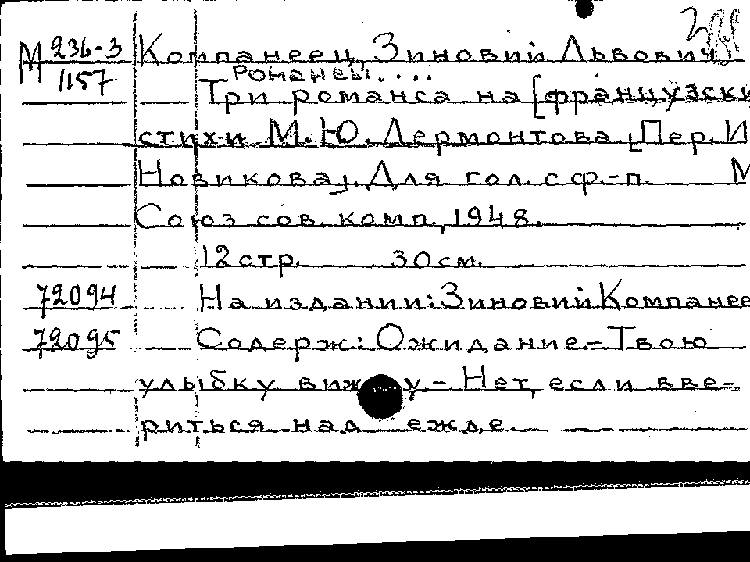 М 236-3 Компанеец, Зиновий Львович
1157 Романсы....
Три романса на [французски
стихи М.Ю.Лермонтова [Пер. И
Новикова]. Для гол. с ф.-п. М
Союз сов. комп., 1948.
12 стр. 30 см.
72094 На издании: Зиновий Компанее
72095 Содерж: Ожидание.- Твою
улыбку вижу.- Нет, если вве-
риться надежде.